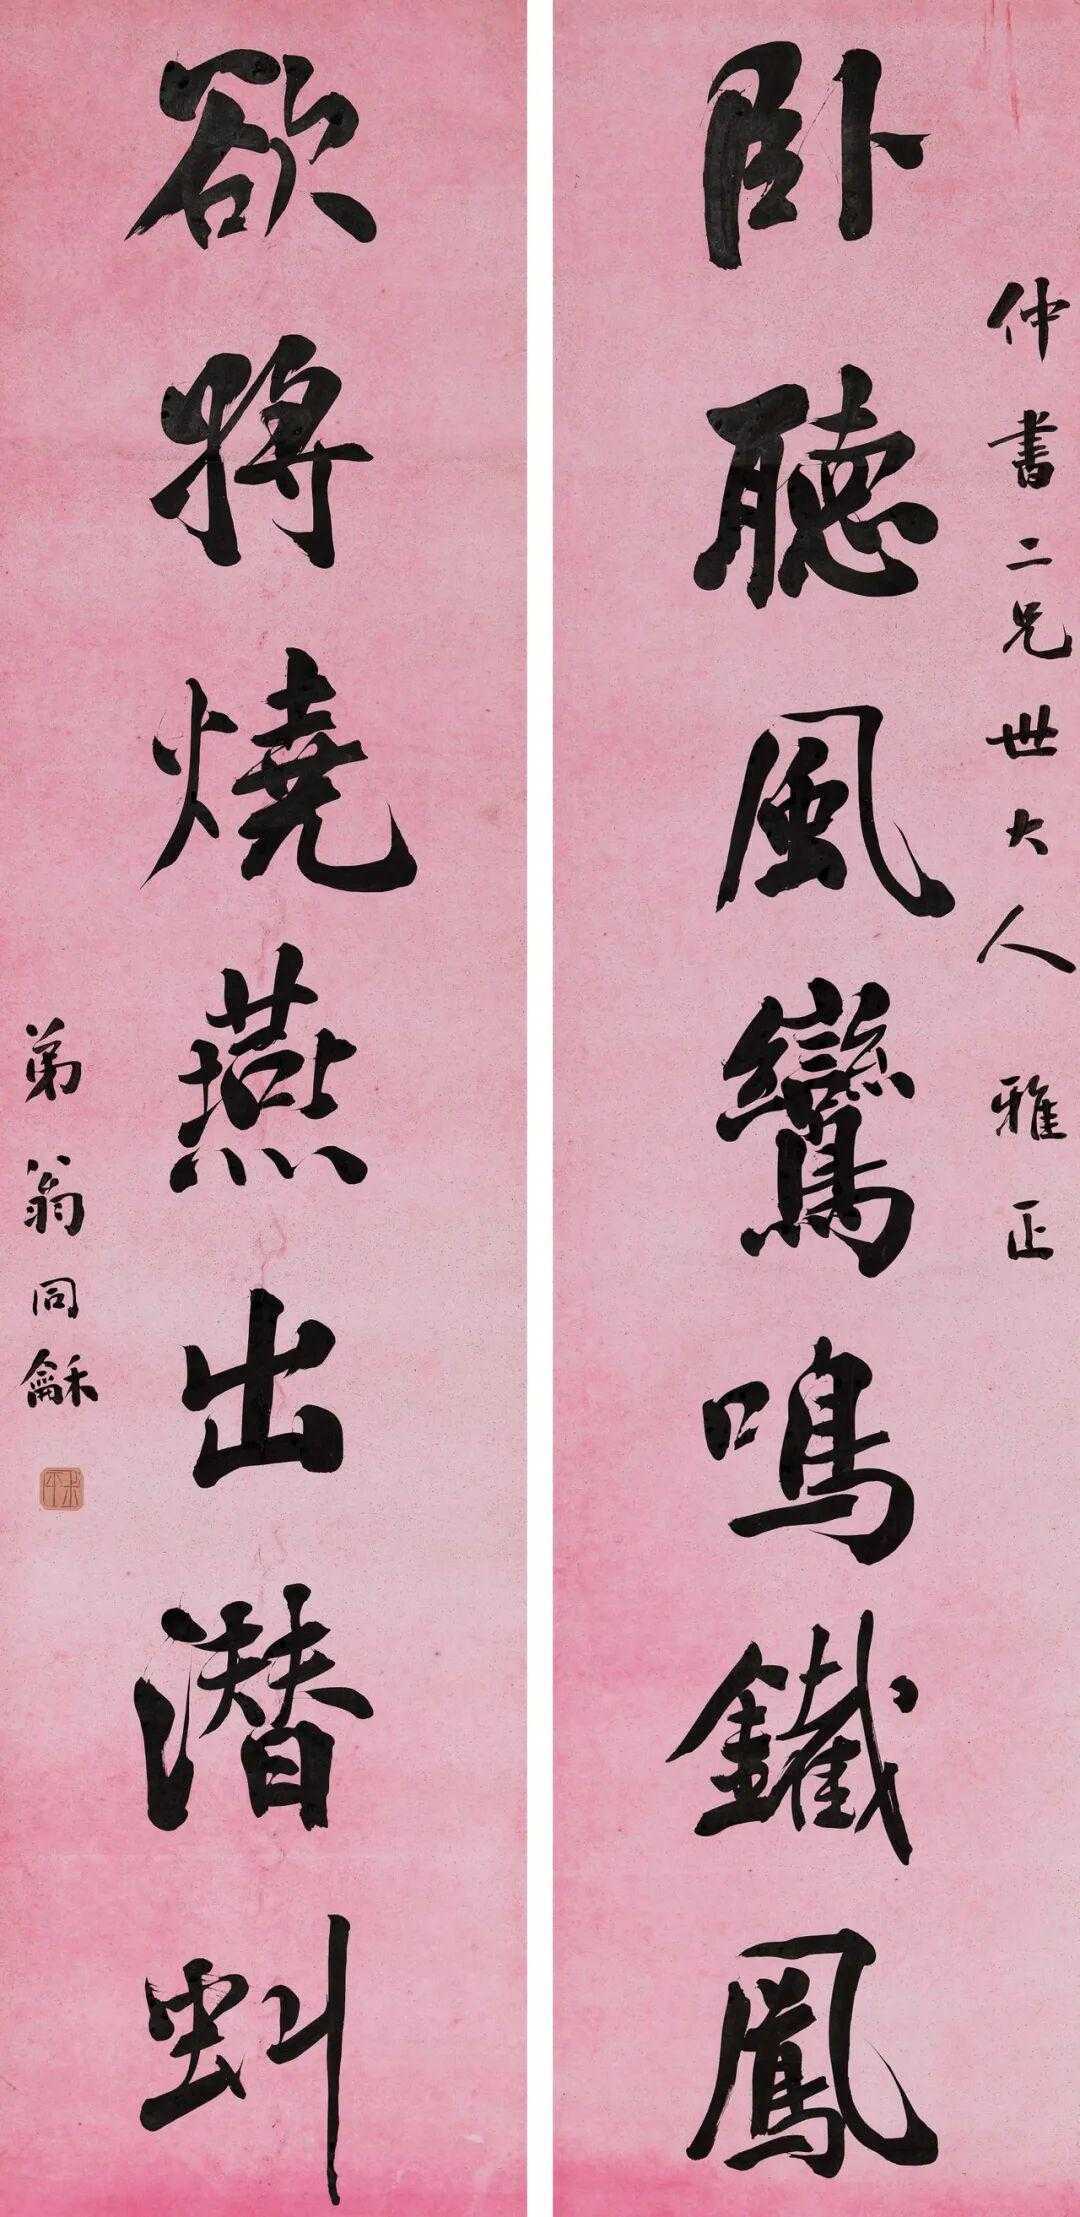 仲書二兄世大人雅正
卧聽風鸞鳴鐵鳳
欲將燒燕出潛虯
弟翁同龢